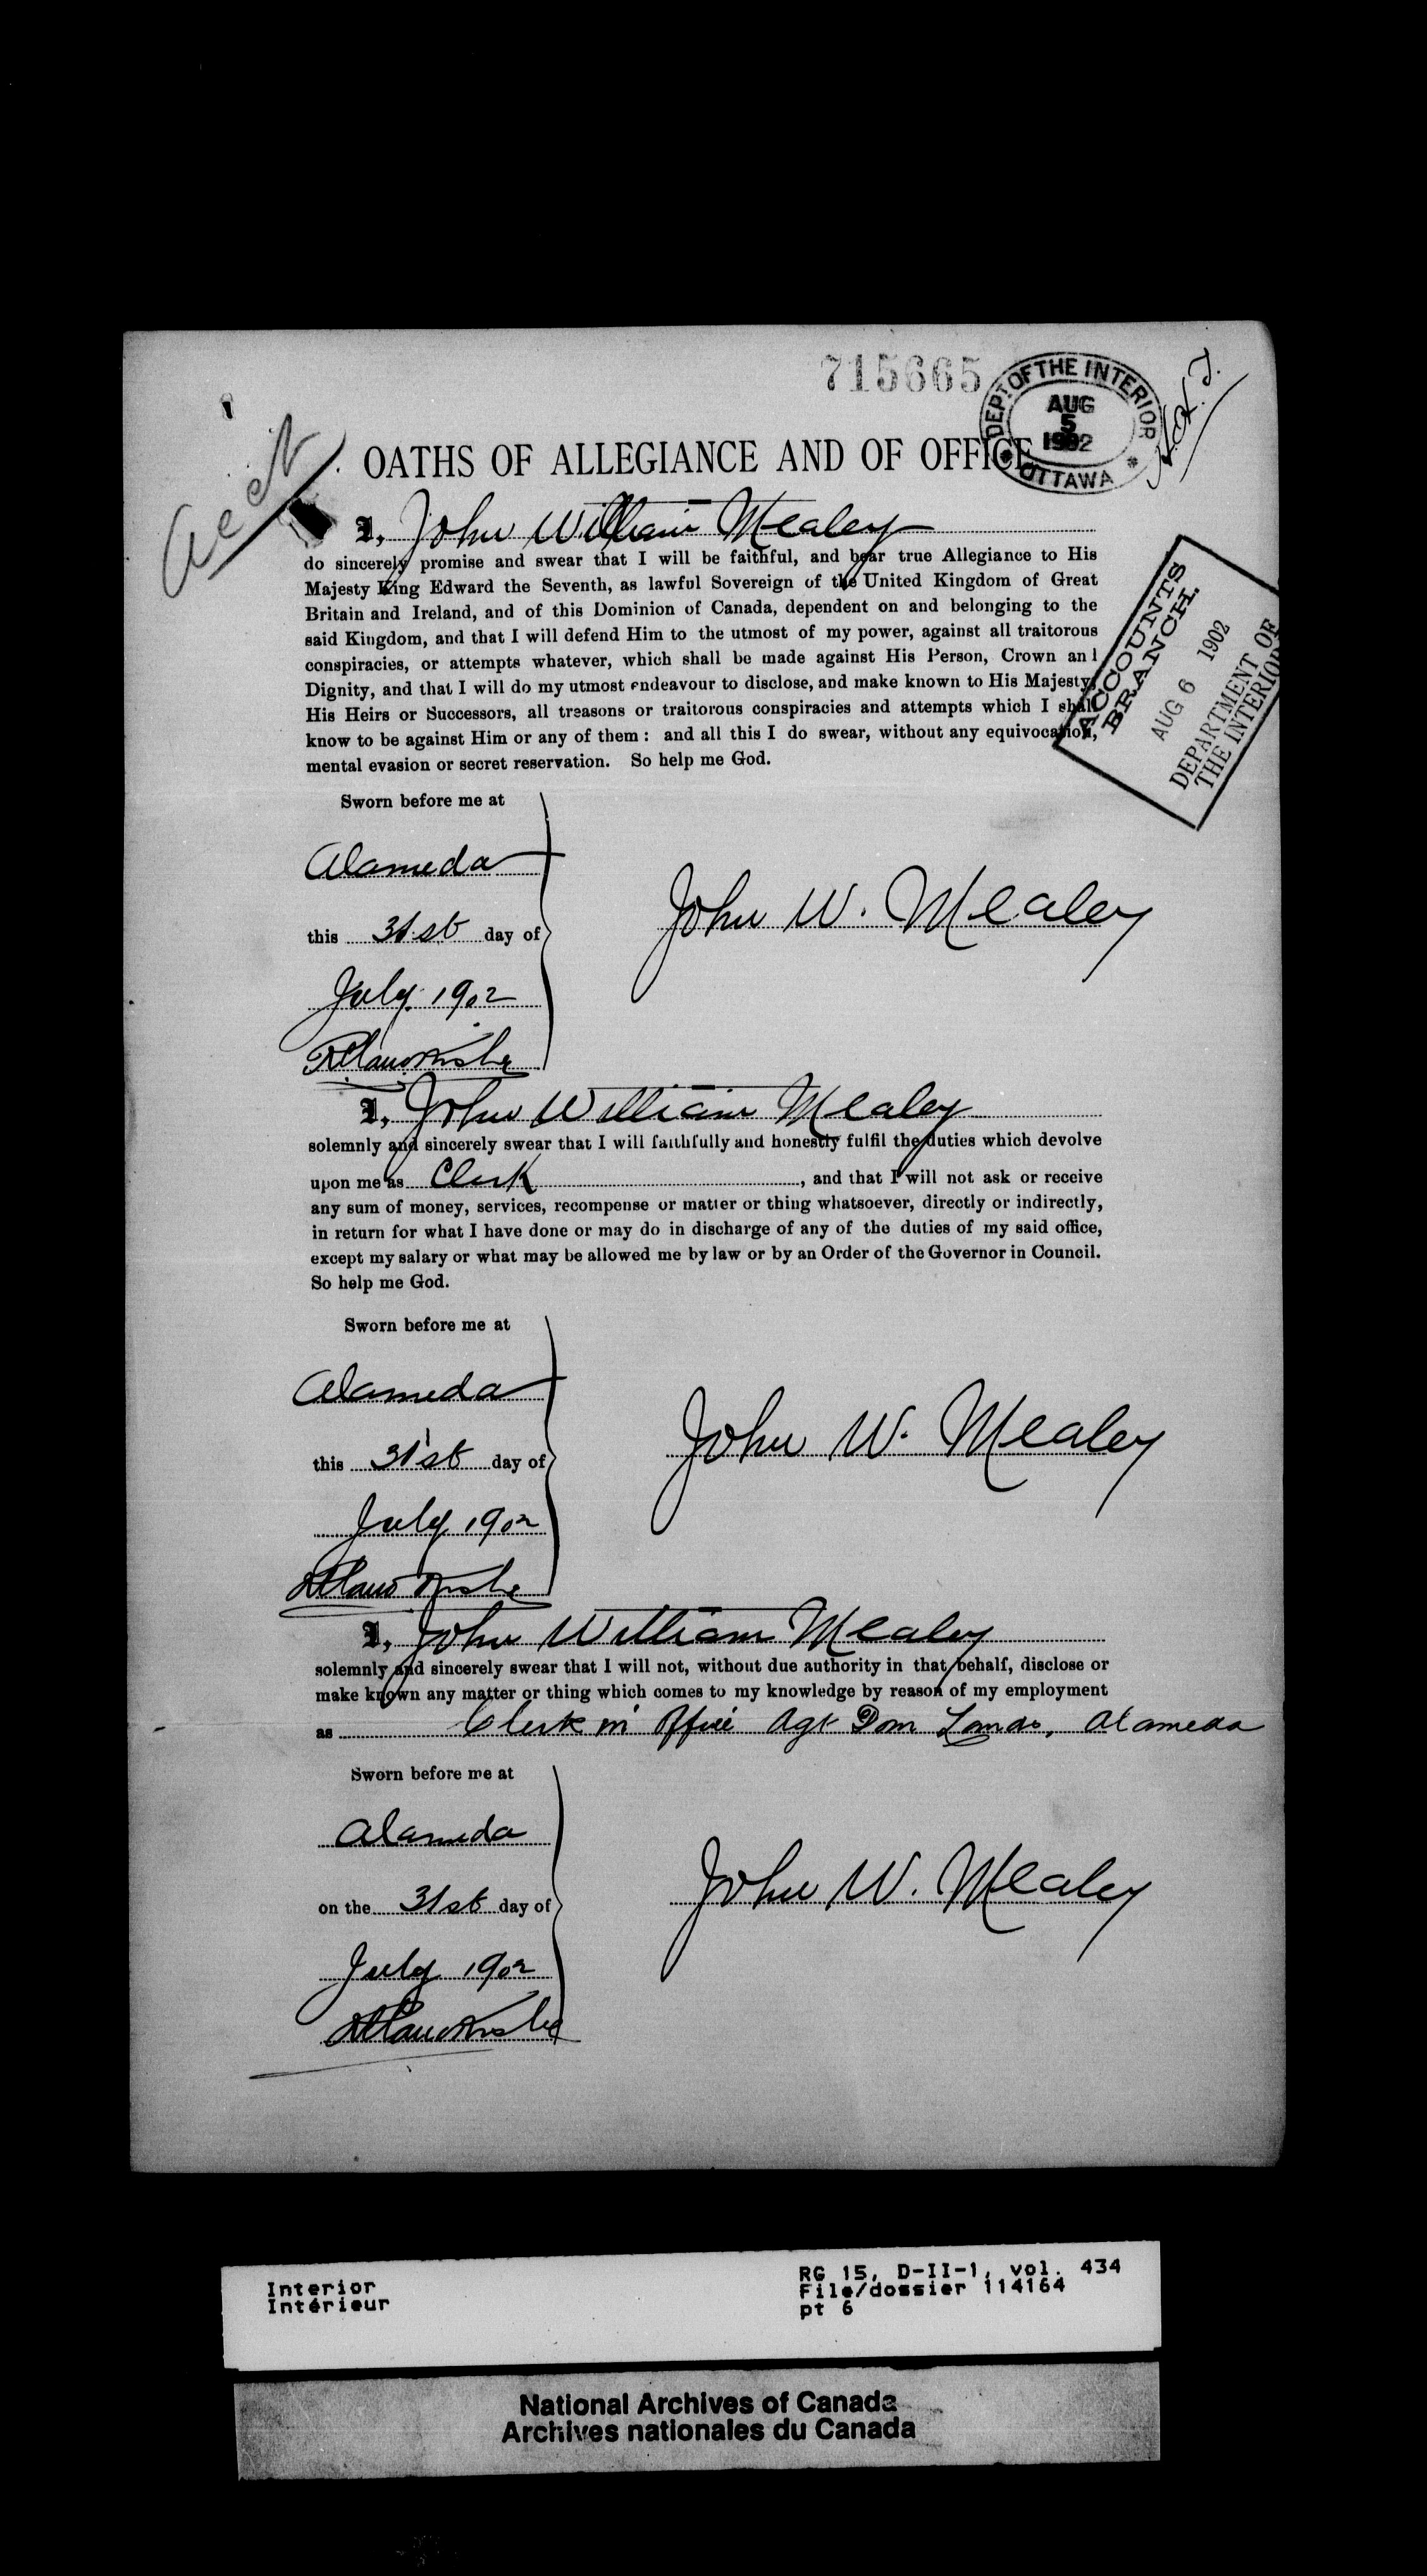 715665
DEPT. OF THE INTERIOR
AUG
5
1902
OTTAWA
Acct
OATHS OF ALLEGIANCE AND OF OFFICE
I, John William Mealey
do sincerely promise and swear that I will be faithful, and bear true Allegiance to His
Majesty King Edward the Seventh, as lawful Sovereign of the United Kingdom of Great
Britain and Ireland, and of this Dominion of Canada, dependent on and belonging to the
said Kingdom, and that I will defend Him to the utmost of my power, against all traitorous
conspiracies, or attempts whatever, which shall be made against His Person, Crown and
Dignity, and that I will do my utmost endeavour to disclose, and make known to His Majesty,
His Heirs or Successors, all treasons or traitorous conspiracies and attempts which I shall
know to be against Him or any of them : and all this I do swear, without any equivocation,
mental evasion or secret reservation. So help me God.
ACCOUNTS
BRANCH.
AUG 6 1902
DEPARTMENT OF
THE INTERIOR
Sworn before me at
Alameda
this 31st day of
July 1902
John W. Mealey
I, John William Mealey
solemnly and sincerely swear that I will faithfully and honestly fulfil the duties which devolve
upon me as Clerk, and that I will not ask or receive
any sum of money, services, recompense or matter or thing whatsoever, directly or indirectly,
in return for what I have done or may do in discharge of any of the duties of my said office,
except my salary or what may be allowed me by law or by an Order of the Governor in Council.
So help me God.
Sworn before me at
Alameda
this 31st day of
July 1902
John W. Mealey
I, John William Mealey
solemnly and sincerely swear that I will not, without due authority in that behalf, disclose or
make known any matter or thing which comes to my knowledge by reason of my employment
as Clerk in Office Agt Dom Lands, Alameda
Sworn before me at
Alameda
on the 31st day of
July 1902
John W. Mealey
Interior
Intérieur
RG 15, D-II-1, vol. 434
File/dossier 114164
pt 6
National Archives of Canada
Archives nationales du Canada